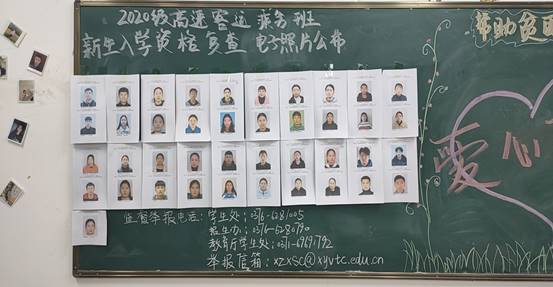 2020级高速客运乘务班
新生入学资格复查 电子照片公布
帮助贫困
爱心
监督举报电话：学生处：0376-6281005
招生办：0376-6280790
教育厅学生处：0371-69691792
举报信箱：xzxsc@xyvtc.edu.cn